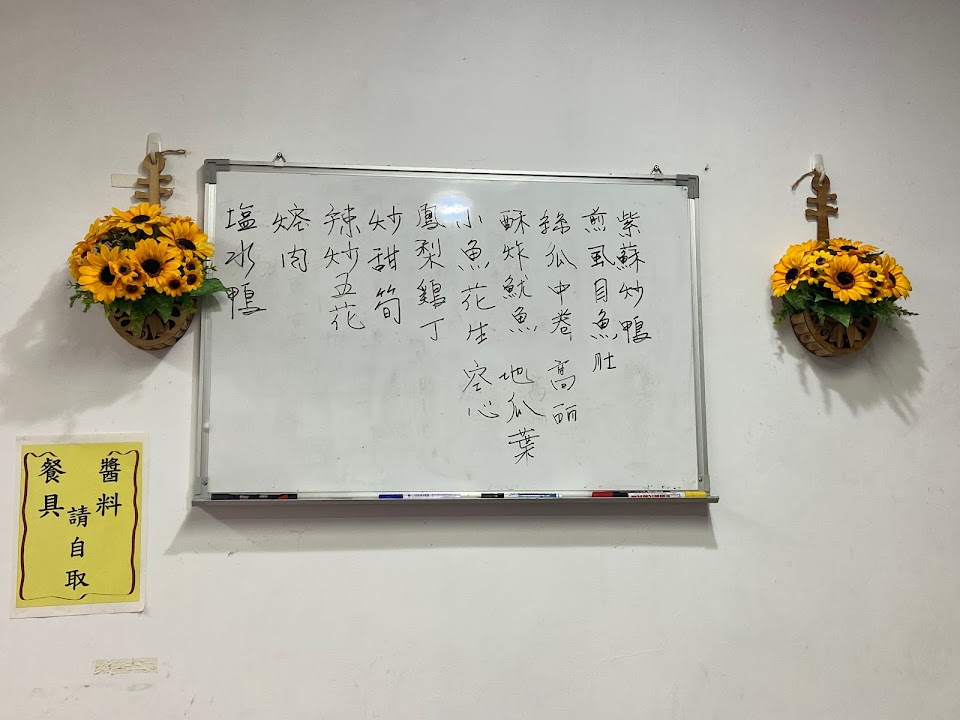 紫蘇炒鴨
煎虱目魚肚
絲瓜中卷 高麗
酥炸魷魚 地瓜葉
小魚花生 空心
鳳梨鷄丁
炒甜筍
辣炒五花
焢肉
塩水鴨
醬料
請自取
餐具